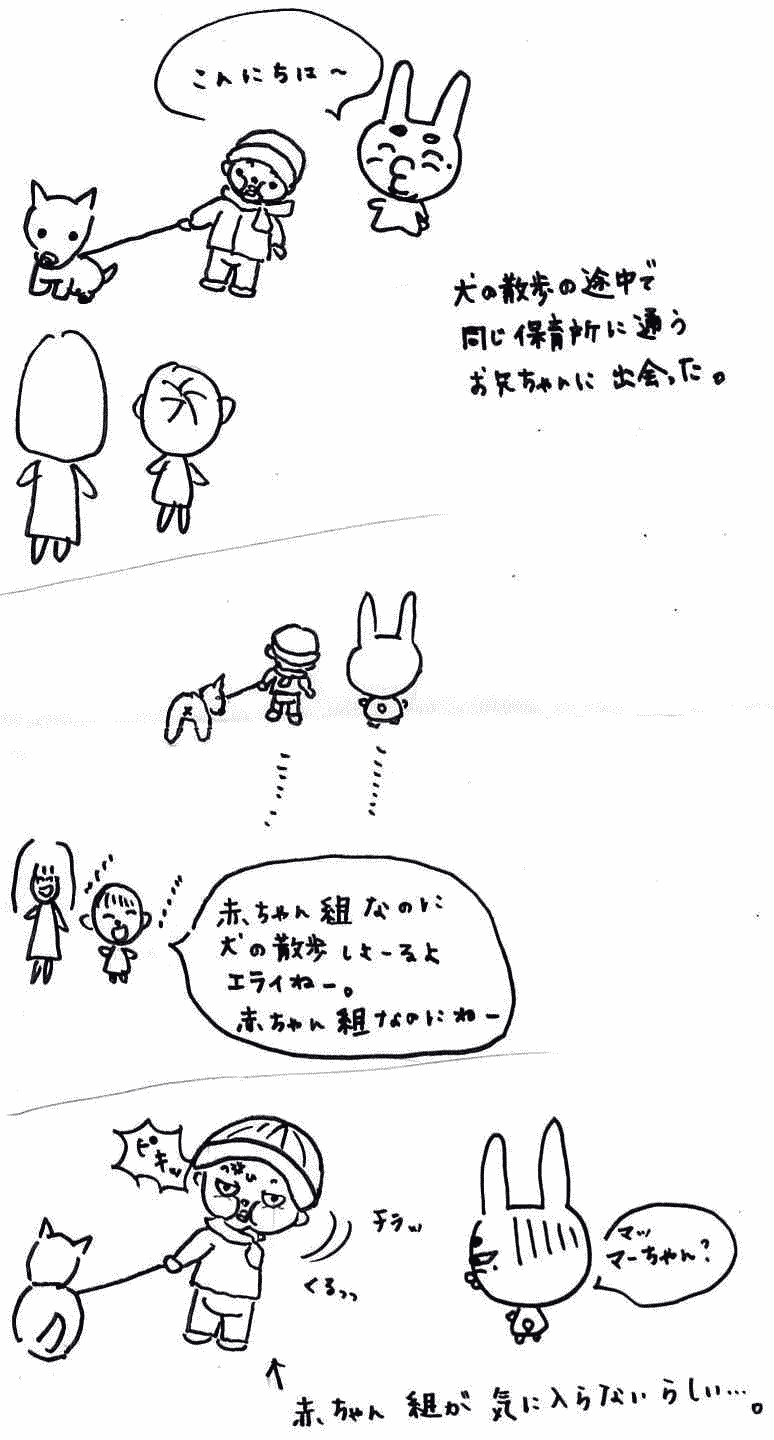 こんにちは〜
犬の散歩の途中で
同じ保育所に通う
お兄ちゃんに出会った。
赤ちゃん組なのに
犬の散歩しよーるよ
エライねー。
赤ちゃん組なのにねー
ピキッ
チラッ
くるっっ
マッ
マーちゃん?
↑
赤ちゃん組が気に入らないらしい…。